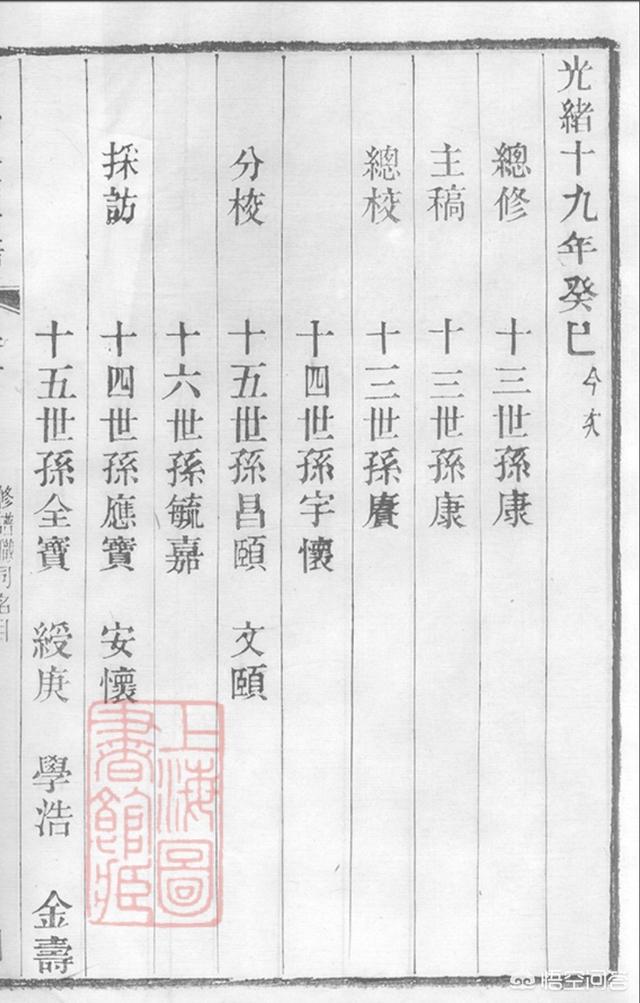 光緒十九年癸巳 今亥
總修 十三世孫康
主稿 十三世孫康
總校 十三世孫賡
十四世孫宇懷
分校 十五世孫昌頤 文頤
十六世孫毓嘉
採訪 十四世孫應寶 安懷
十五世孫全寶 綬庚 學浩 金壽
修譜職司名目
上海圖書館藏
悟空问答